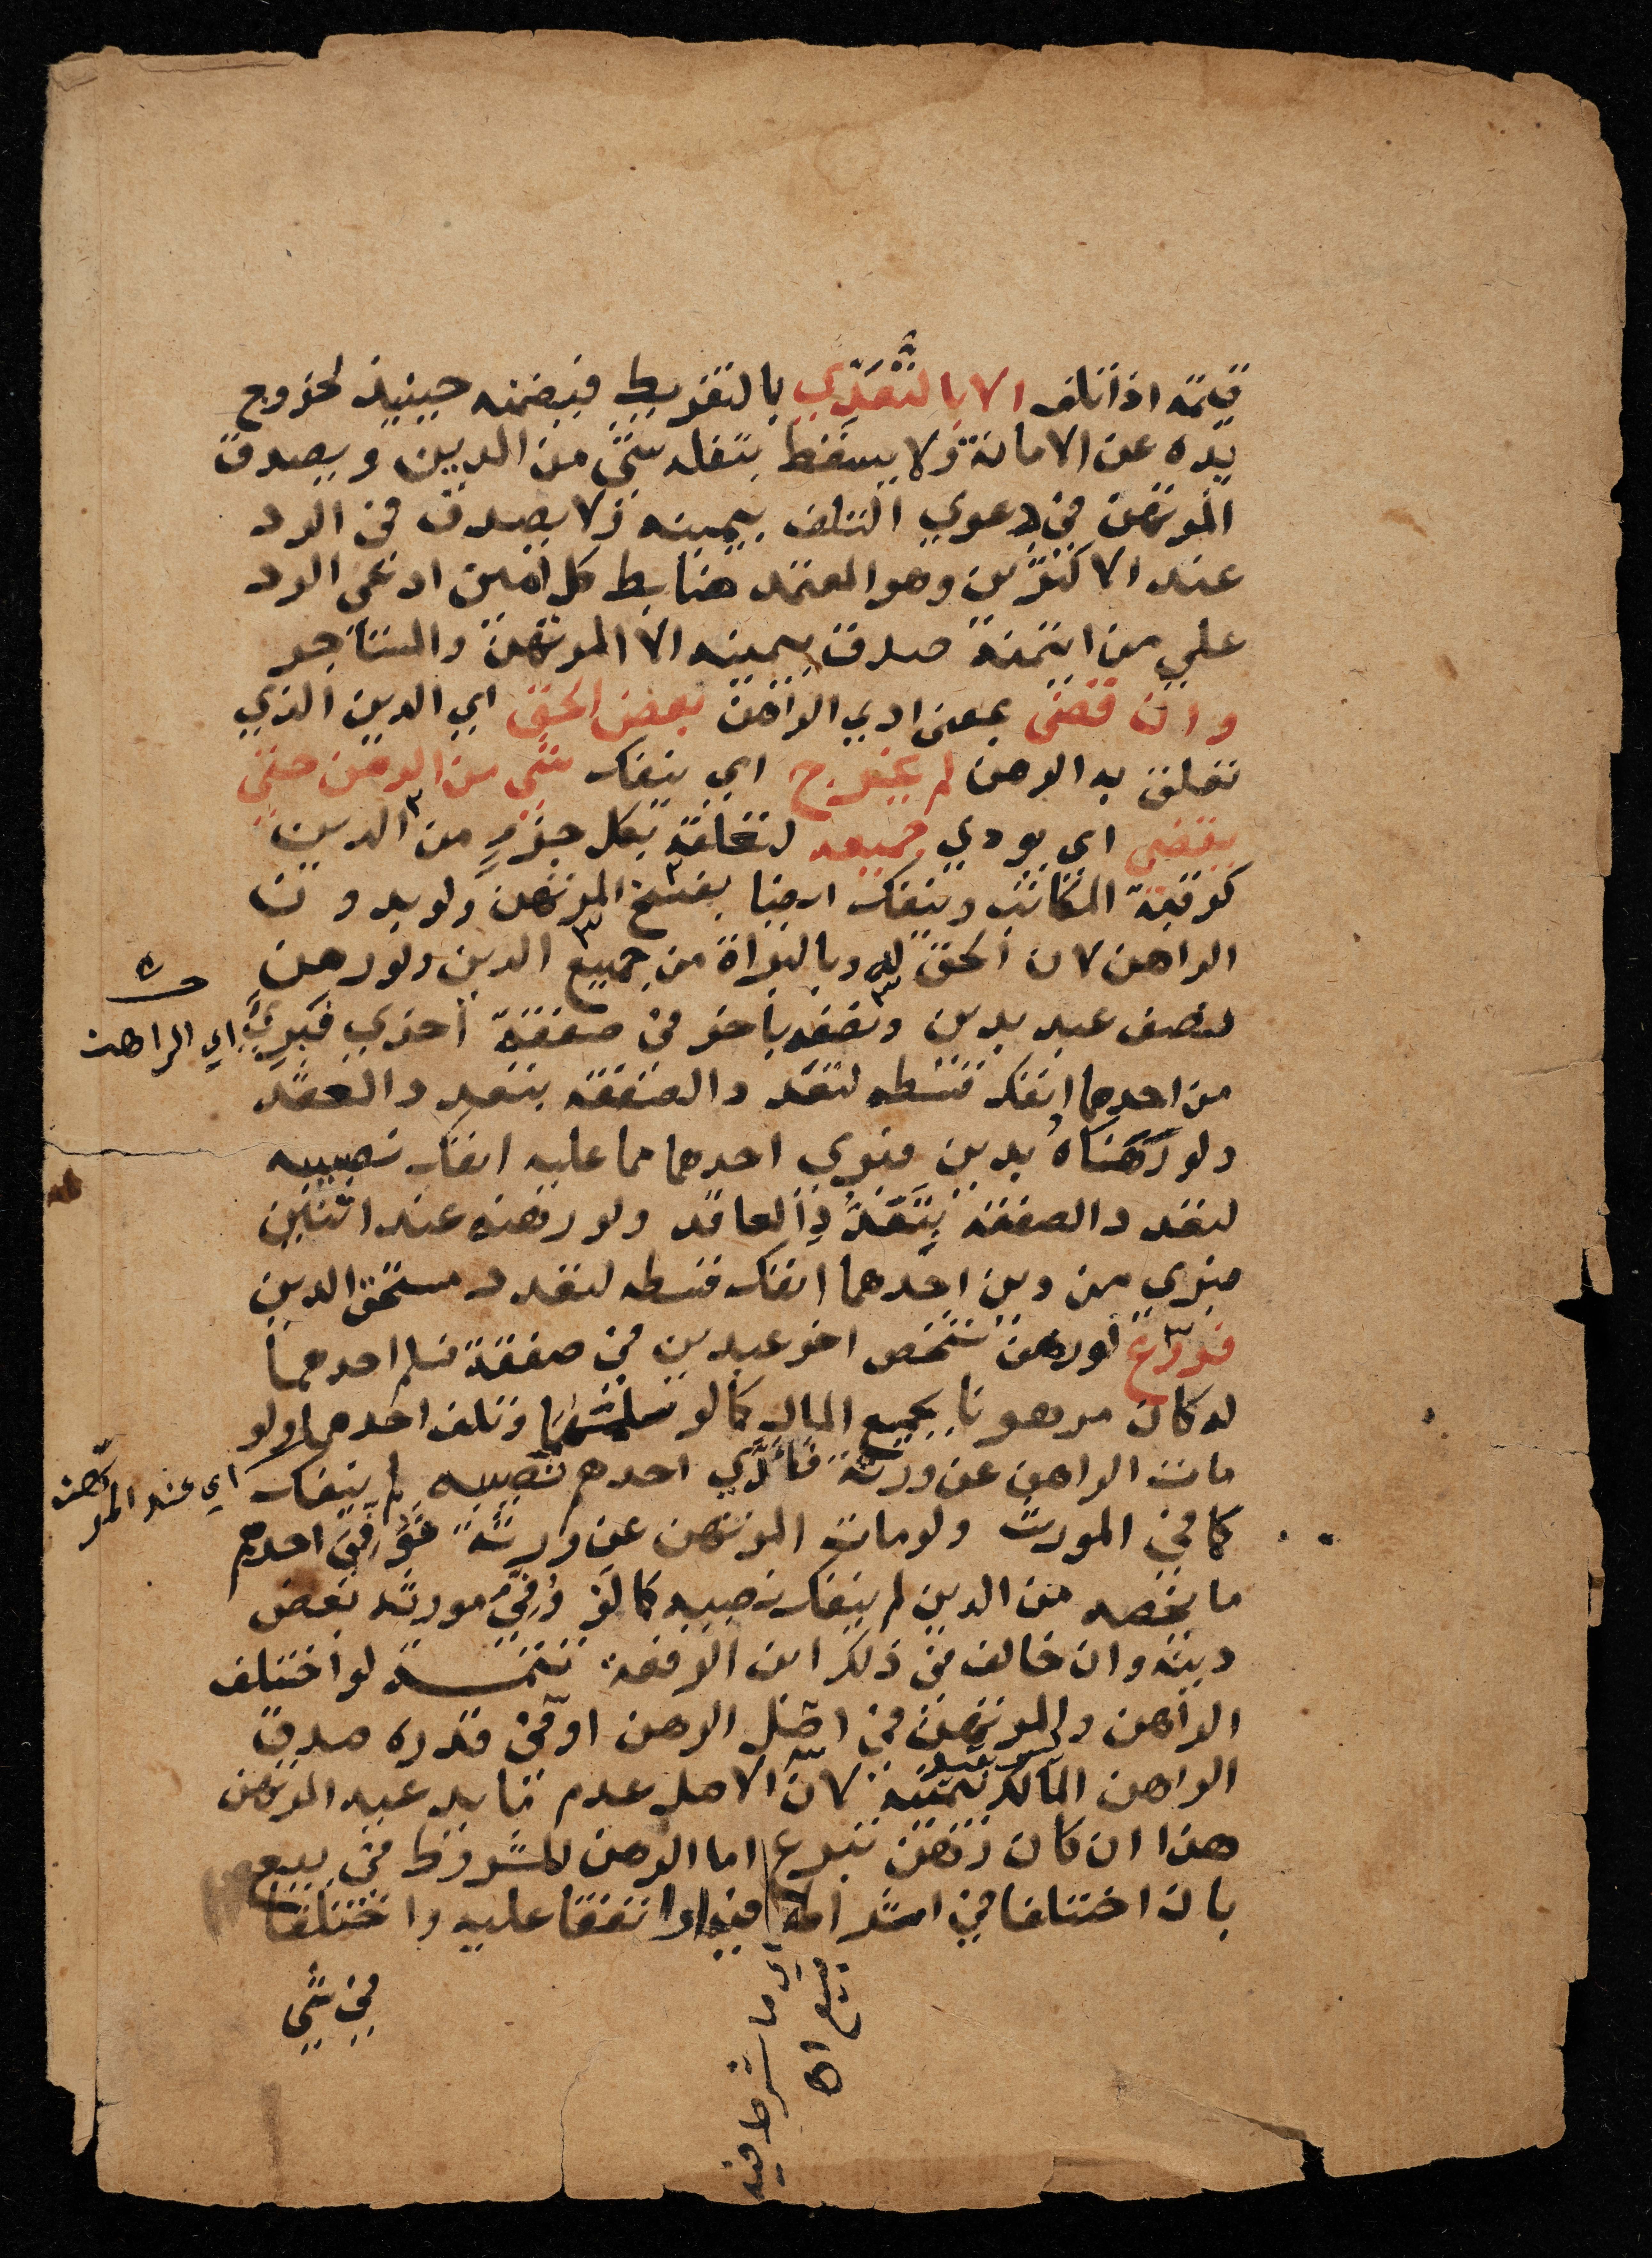 قيمته اذا تلف الا بالتعدي بالتفريط فيضمنه حينيذ لخروج
يده عن الامانة ولا يسقط بتلفه شي من الدين ويصدق
المرتهن في دعوي التلف بيمينه ولا يصدق في الرد
عند الاكثرين وهو المعتمد ضابط كل امين ادعي الرد
علي من ايتمنه صدق بيمينه الا المرتهن والمستاجر
وان قضي بمعني ادي الراهن بعض الحق اي الدين الذي
تعلق به الرهن لم يخرج اي ينفك شي من الرهن حتي
يقضي اي يودي جميعه لتعلقه بكل جزء من الدين
كرقبة المكاتب وينفك ايضا بفسخ المرتهن ولو بدون
الراهن لان الحق له وبالبراة من جميع الدين ولو رهن
نصف عبد بدين ونصفه باخر في صفقة اخري فبري
اي الراهن
من احدهما انفك قسطه لتعدد الصفقة بتعدد العقد
ولو رهناه بدين فبري احدهما مما عليه انفك نصيبه
لتعدد الصفقة بتعدد العاقد ولو رهنه عند اثنين
فبري من دين احدهما انفك قسطه لتعدد مستحق الدين
فروع لو رهن شخص اخر عبدين في صفقة فسلم احدهما
له كان مرهونا بجميع المال كما لو سلمهما وتلف احدهما ولو
مات الراهن عن ورثة فادي احدهم نصيبه لم ينفك
اي عند المرتهن
كما في المورث ولو مات المرتهن عن ورثة فوفي احدهم
ما يخصه من الدين لم ينفك نصيبه كما لو وفي مورثه بعض
دينه وان خالف في ذلك ابن الرفعة تتمة لو اختلف
الراهن والمرتهن في اصل الرهن او في قدره صدق
الراهن المالك بيمينه لان الاصل عدم ما يدعيه المرتهن
هذا ان كان رهن تبرع اما الرهن المشروط في بيع
بان اختلفا في اشتراطه فيه او اتفقا عليه واختلفا
في شي